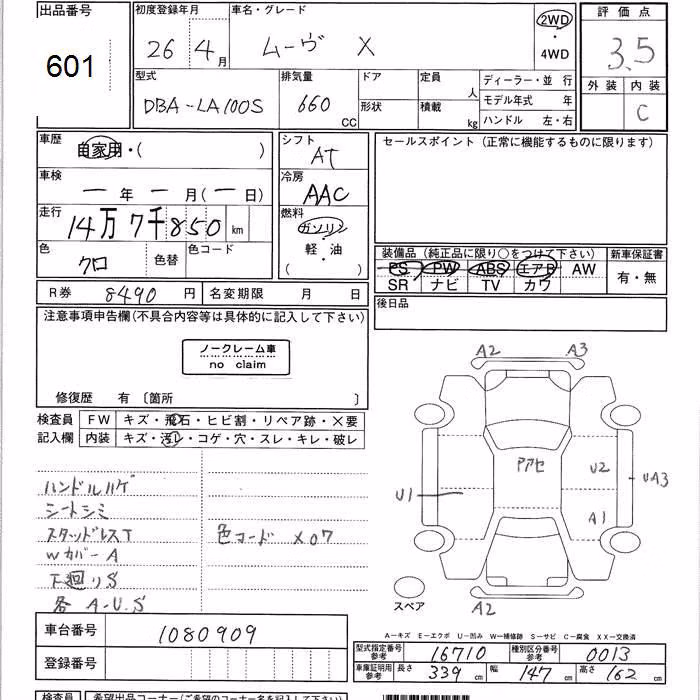 出品番号
601
初度登録年月
26 年 4 月
車名・グレード
ムーヴ X
2WD
・
4WD
評価点
3.5
外装 内装
C
型式
DBA-LA100S
排気量
660
CC
ドア
形状
定員
人
積載
kg
ディーラー・並 行
モデル年式 年
ハンドル 左・右
車歴
自家用・( )
車検
ー 年 ー 月(ー 日)
走行
14万7千850 km
色
クロ
色替
色コード
シフト
AT
冷房
AAC
燃料
ガソリン
・
軽・油
( )
R券 8490 円
名変期限 月 日
セールスポイント (正常に機能するものに限ります)
装備品 (純正品に限り○をつけて下さい)
PS PW ABS エアB AW
SR ナビ TV カワ
新車保証書
有・無
後日品
注意事項申告欄(不具合内容等は具体的に記入して下さい)
ノークレーム車
no claim
修復歴 有 〔箇所 〕
検査員
記入欄
FW キズ・飛石・ヒビ割・リペア跡・×要
内装 キズ・汚レ・コゲ・穴・スレ・キレ・破レ
ハンドルハゲ
シートシミ
スタッドレスT
Wカバー A
下廻りS
各 A-U.S
色コード X07
A2
A3
アアセ
U2
UA3
U1
A1
A2
スペア
車台番号 1080909
登録番号
A―キズ E―エクボ U―凹み W―補修跡 S―サビ C―腐食 XX―交換済
型式指定番号
参考
16710
種別区分番号
参考
0013
車庫証明用
参考
長さ 339 cm
幅 147 cm
高さ 162 cm
検査員
希望出品コーナー(ご希望のコーナー名を記入して下さい)